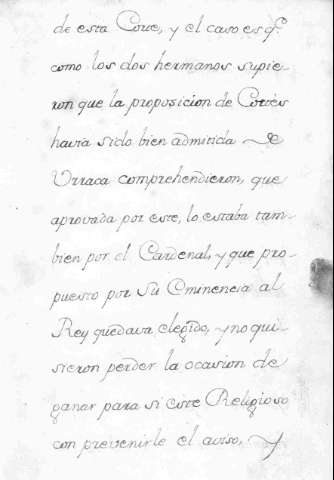 de esta Corte, y el caso es q.e
como los dos hermanos supie-
ron que la proposicion de Cortès
havia sido bien admitida de
Urraca comprehendieron, que
aprovada por este, lo estaba tam-
bien por el Cardenal, y que pro-
puesto por Su Eminencia al
Rey quedava elegido, y no qui-
sieron perder la ocasion de
ganar para si este Religioso
con prevenirle el aviso, y